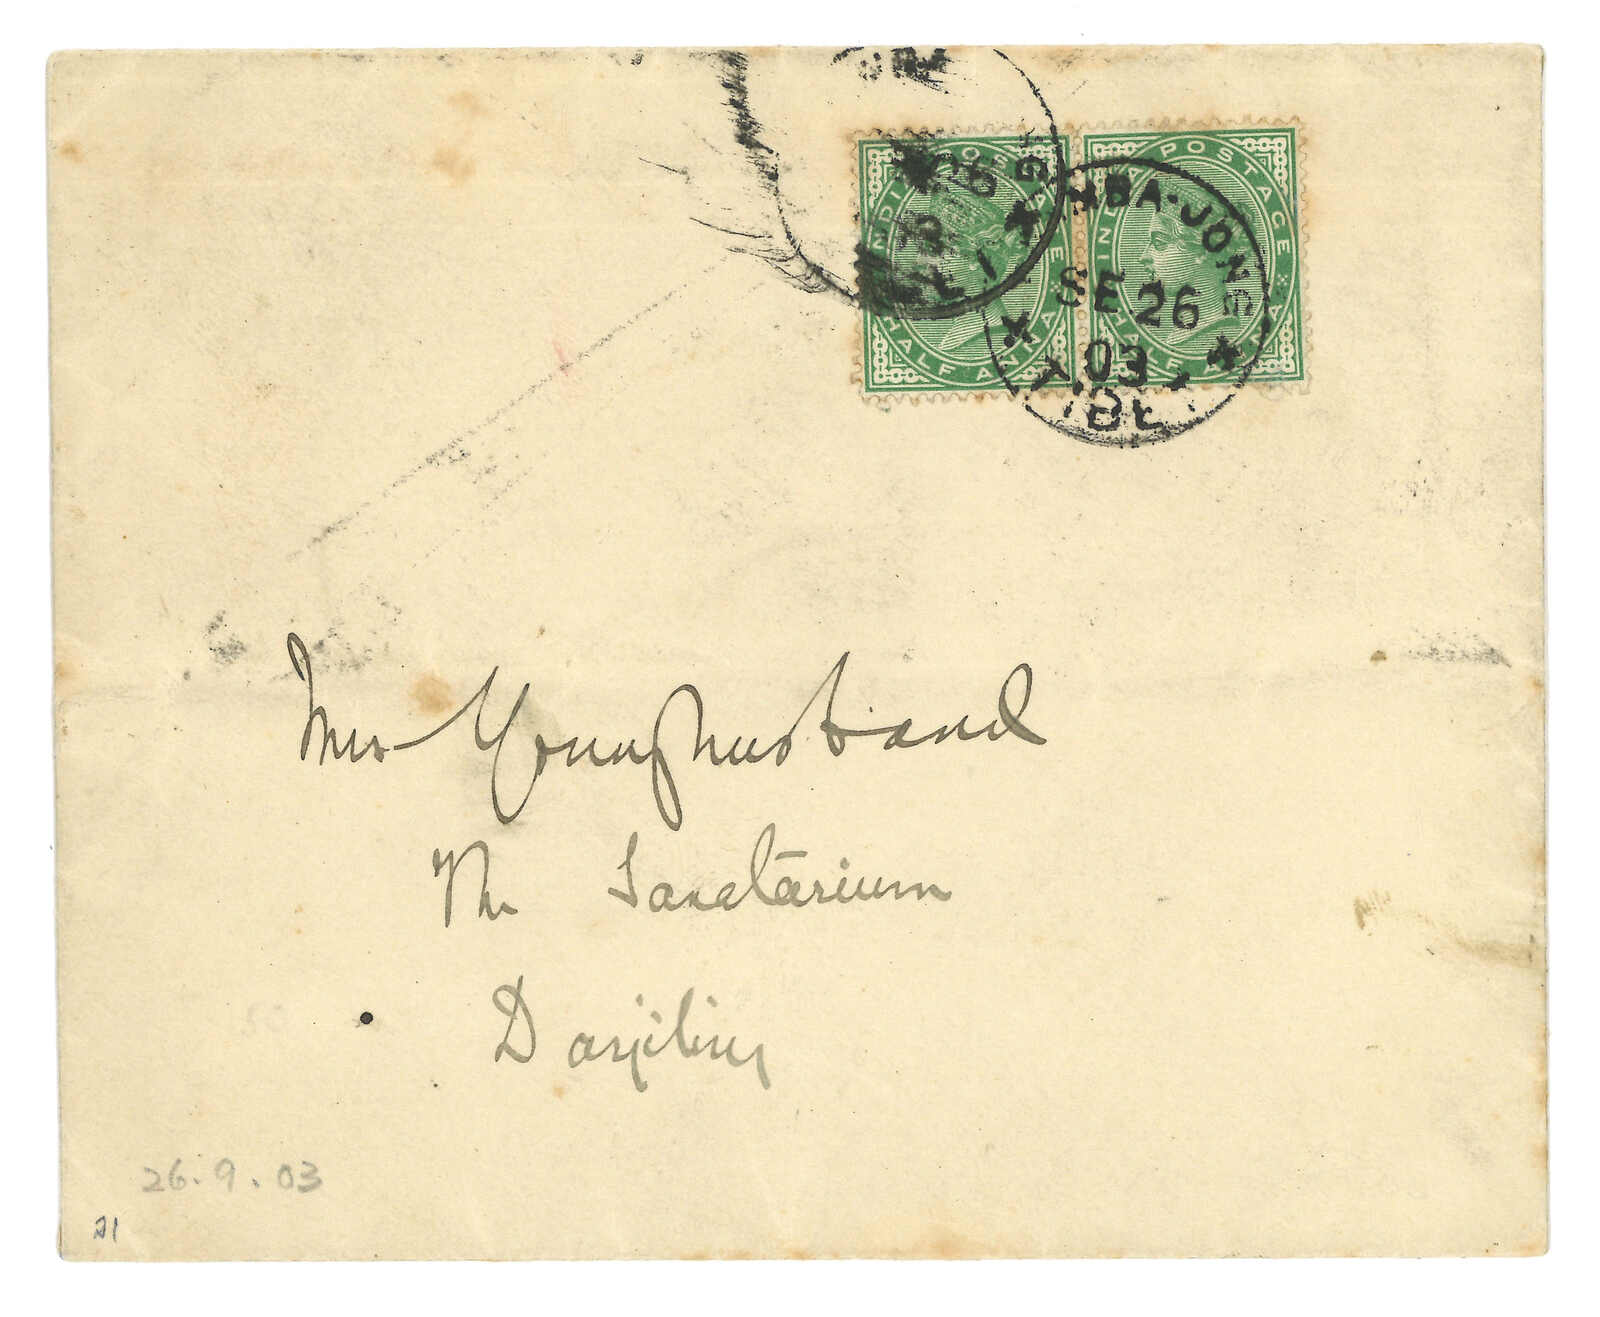 INDIA POSTAGE
HALF ANNA
INDIA POSTAGE
HALF ANNA
KHAMBA-JONG
SE 26
03
TIBET
Mrs Younghusband
The Sanatārium
Darjiling
26.9.03
21